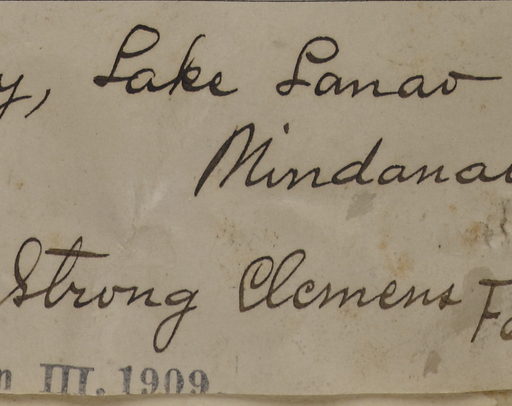 y, Lake Lanao
Mindanao
Strong Clemens
III. 1909.